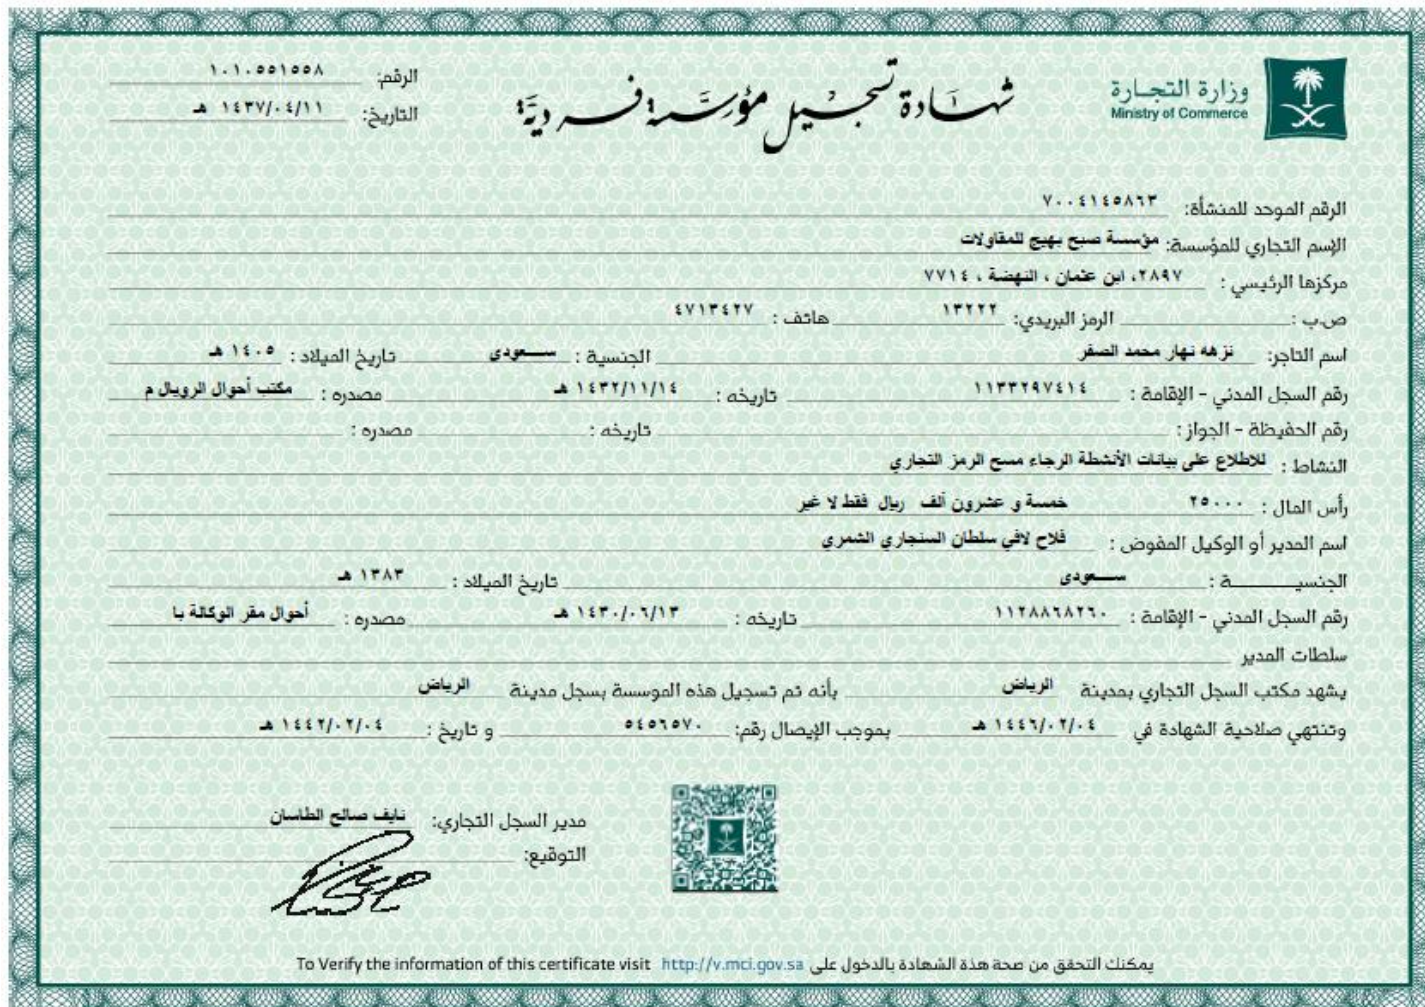 وزارة التجارة
Ministry of Commerce
شهادة تسجيل مؤسسة فردية
الرقم: ١٠١٠٥٥١٥٥٨
التاريخ: ١٤٣٧/٠٤/١١ هـ
الرقم الموحد للمنشأة: ٧٠٠٤١٤٥٨٦٣
الإسم التجاري للمؤسسة: مؤسسة صبح بهيج للمقاولات
مركزها الرئيسي : ٢٨٩٧، ابن عثمان ، النهضة ، ٧٧١٤
ص.ب : الرمز البريدي: ١٣٢٢٢ هاتف : ٤٧١٣٤٢٧
اسم التاجر: نزهه نهار محمد الصقر الجنسية : سعودى تاريخ الميلاد : ١٤٠٥ هـ
رقم السجل المدني - الإقامة : ١١٣٣٢٩٧٤١٤ تاريخه : ١٤٣٢/١١/١٤ هـ مصدره : مكتب أحوال الرويال م
رقم الحفيظة - الجواز : تاريخه : مصدره :
النشاط : للاطلاع على بيانات الأنشطة الرجاء مسح الرمز التجاري
رأس المال : ٢٥٠٠٠ خمسة و عشرون ألف ريال فقط لا غير
اسم المدير أو الوكيل المفوض : فلاح لافي سلطان السنجاري الشمري
الجنسيـــــــة : سعودى تاريخ الميلاد : ١٣٨٣ هـ
رقم السجل المدني - الإقامة : ١١٢٨٨٦٨٢٦٠ تاريخه : ١٤٣٠/٠٦/١٣ هـ مصدره : أحوال مقر الوكالة با
سلطات المدير
يشهد مكتب السجل التجاري بمدينة الرياض بأنه تم تسجيل هذه الموسسة بسجل مدينة الرياض
وتنتهي صلاحية الشهادة في ١٤٤٦/٠٢/٠٤ هـ بموجب الإيصال رقم: ٥٤٥٦٥٧٠ و تاريخ : ١٤٤٢/٠٢/٠٤ هـ
مدير السجل التجاري: نايف صالح الطاسان
التوقيع:
يمكنك التحقق من صحة هذة الشهادة بالدخول على To Verify the information of this certificate visit http://v.mci.gov.sa